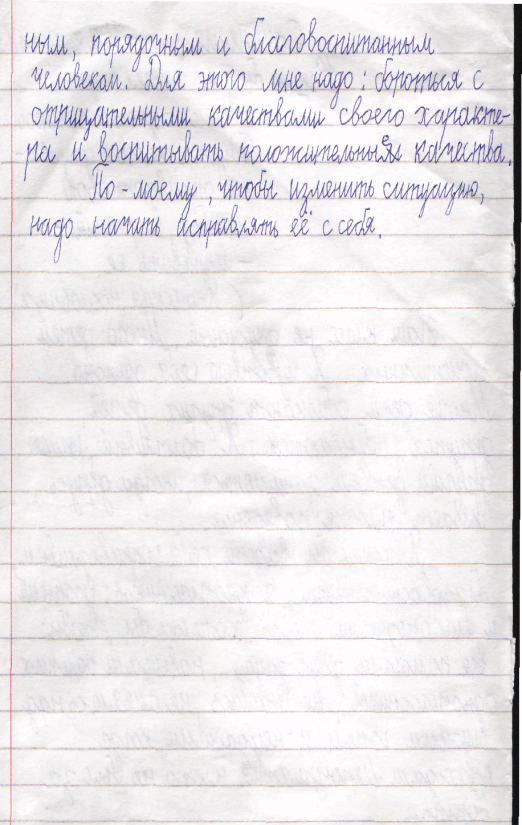 ным, порядочным и благовоспитанным
человеком. Для этого мне надо: бороться с
отрицательными качествами своего характе-
ра и воспитывать положительные качества.
По-моему, чтобы изменить ситуацию,
надо начать исправлять её с себя.